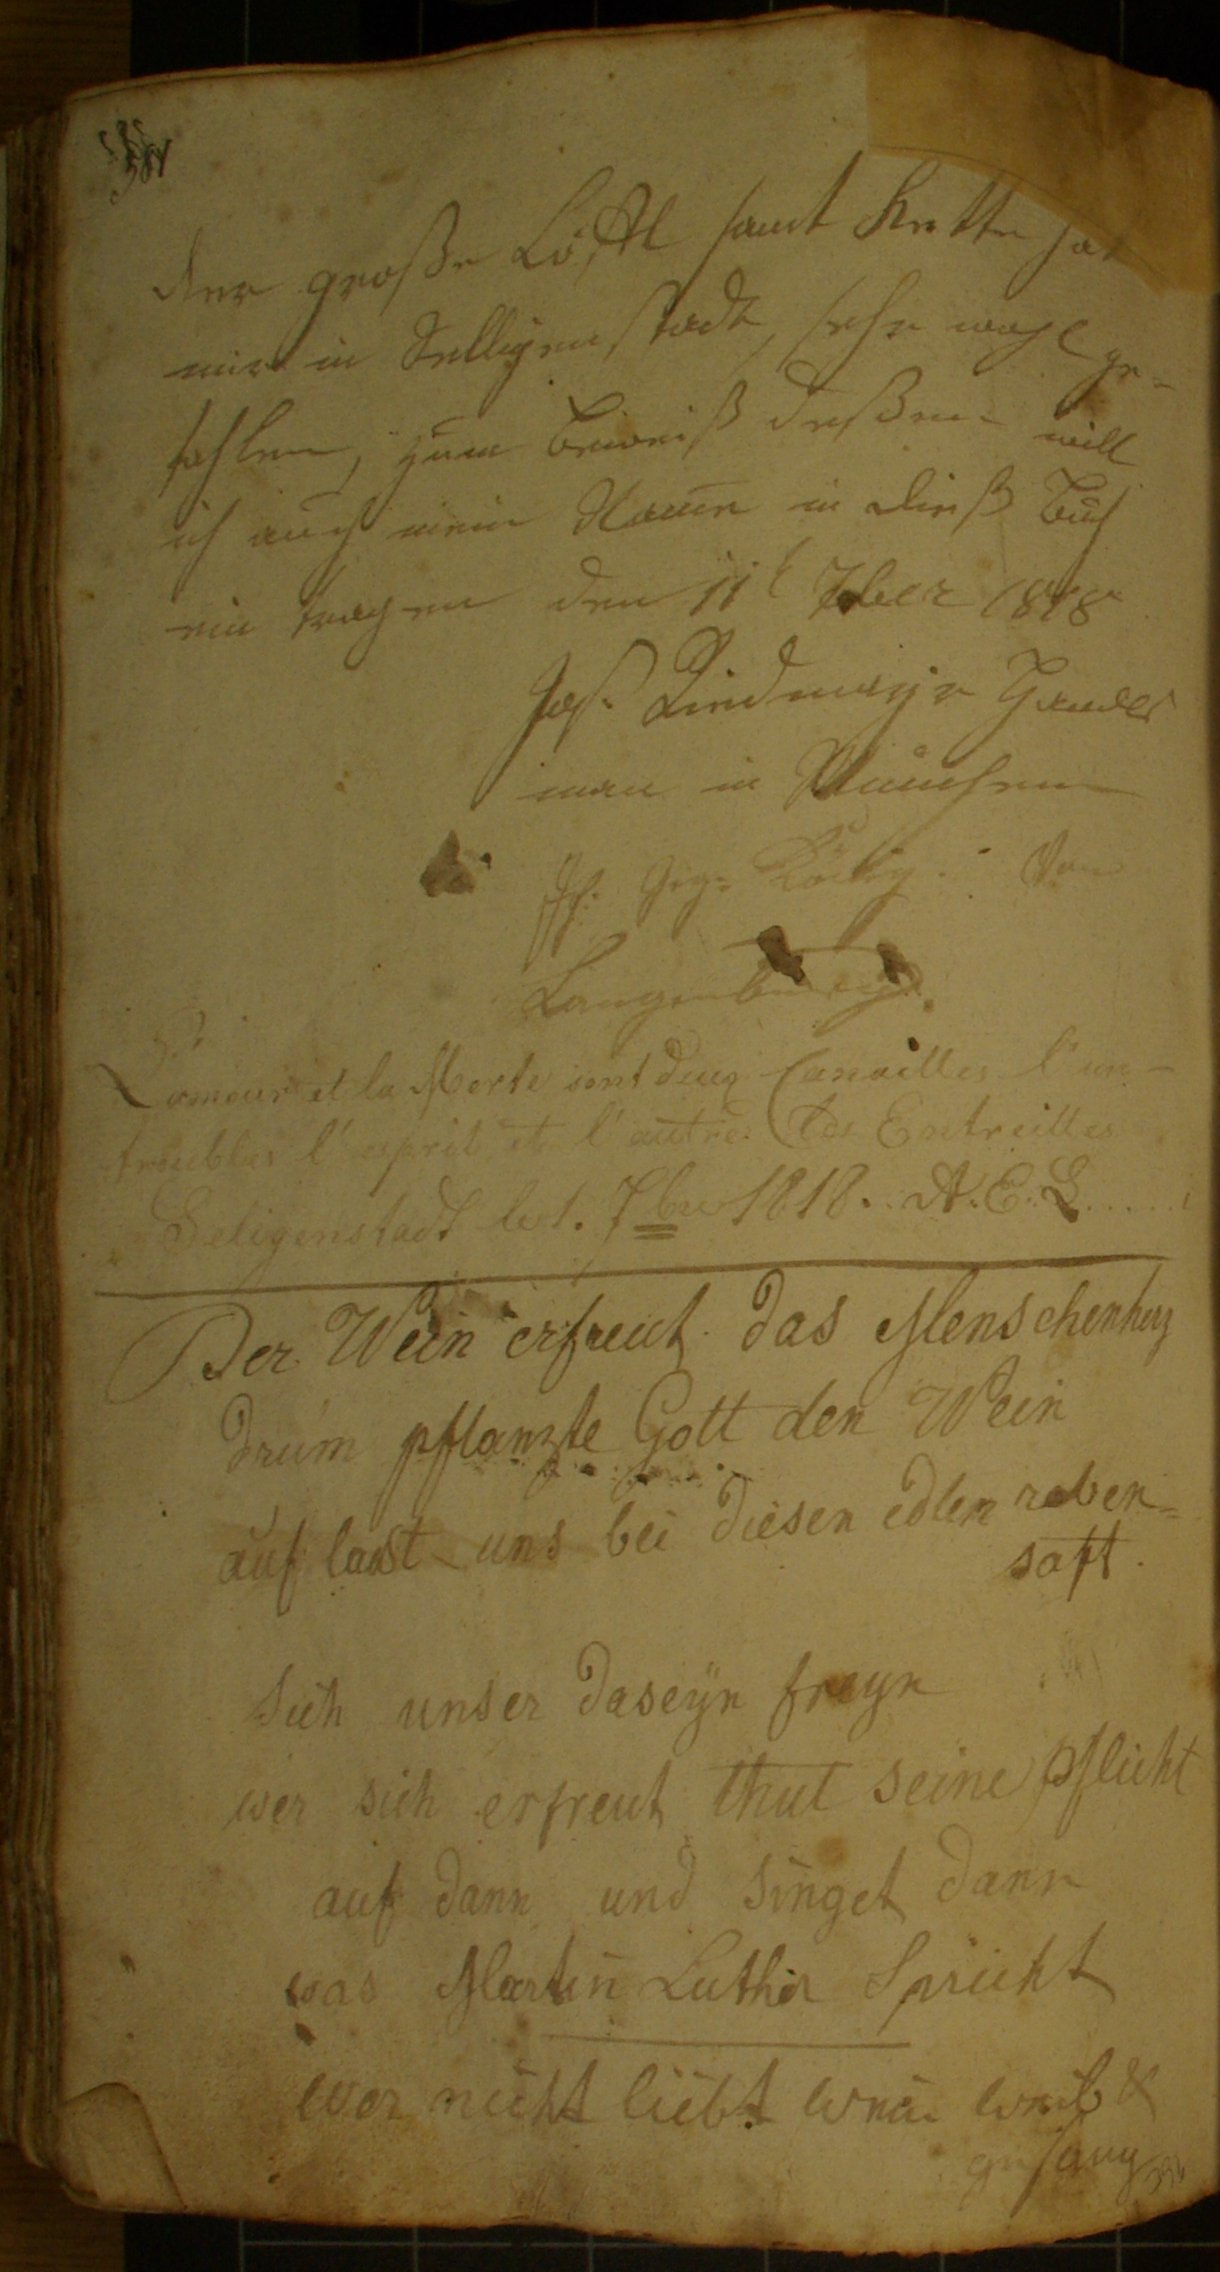 der große Löffel samt Kette hat
mir in Selligenstadt, sehr wohl ge-
fahlen, zum Beweiß deßen will
ich auch mein Name in dieß Buch
ein tragen den 11t 7ber 1818
Jos. Riedmayr Handels
man in München
Langenberg
L'amour et la Morte sont deux Canailles l'un-
troubles l'esprit et l'autre les Entreilles
Seligenstadt le 1. 7bre 1818. A. E. L.....
Der Wein erfreut das Menschenherz
drum pflanzte Gott den Wein
auf last uns bei diesen edlen reben=
saft.
sich unser daseÿn freyn
wer sich erfreut thut seine pflicht
auf dann und singet dann
was Martin Luther Spricht
wer nicht liebt wein weib &
gesang